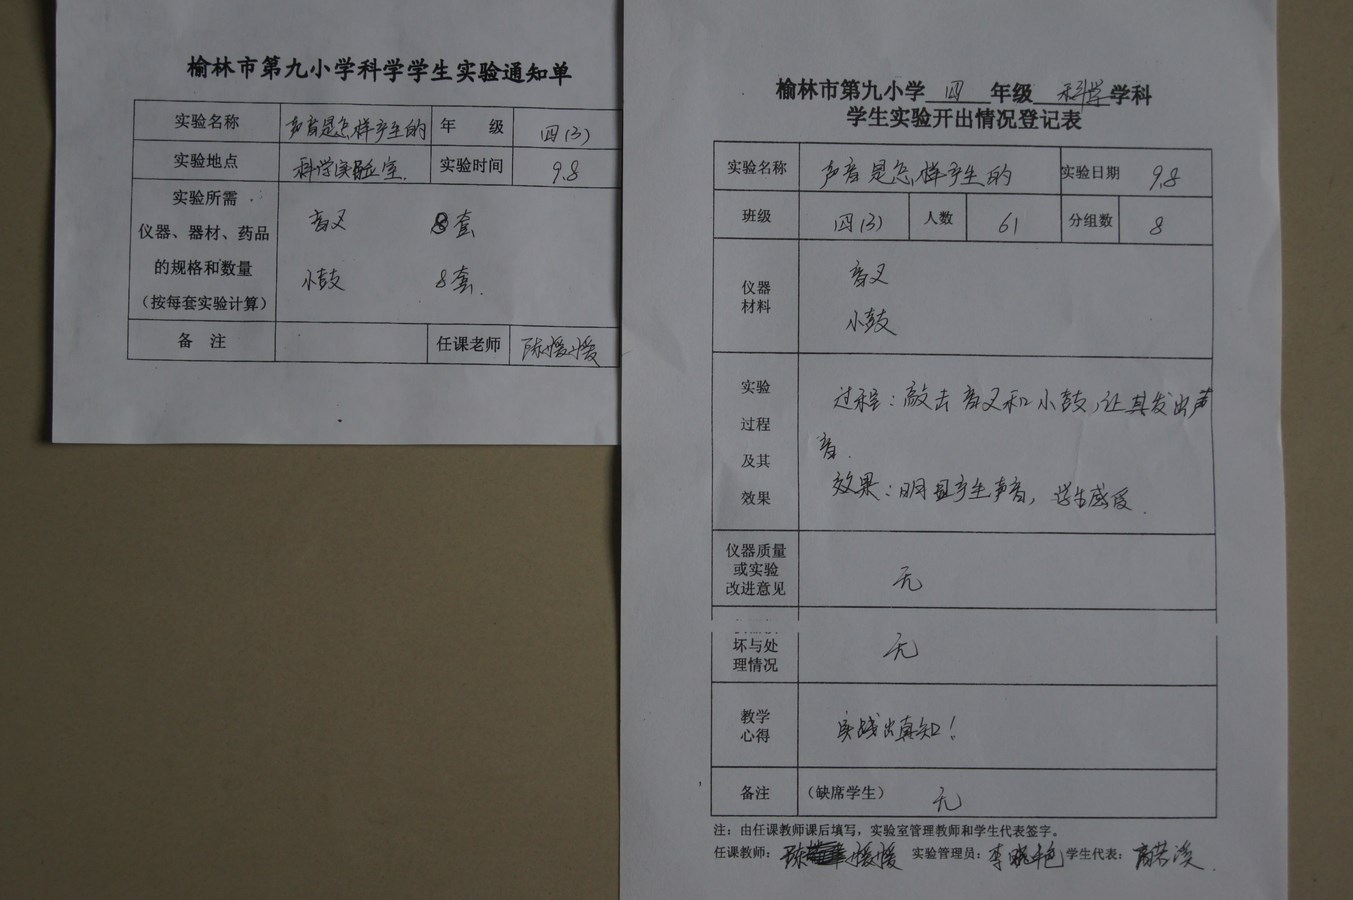 榆林市第九小学科学学生实验通知单
实验名称 声音是怎样产生的 年 级 四(3)
实验地点 科学实验室. 实验时间 9.8
实验所需
仪器、器材、药品
的规格和数量
（按每套实验计算）
音叉 8套
小鼓 8套.
备 注 任课老师 陈媛媛
榆林市第九小学 四 年级 科学 学科
学生实验开出情况登记表
实验名称 声音是怎样产生的 实验日期 9.8
班级 四(3) 人数 61 分组数 8
仪器
材料
音叉
小鼓
实验
过程
及其
效果
过程：敲击音叉和小鼓，让其发出声
音.
效果：明显产生声音，学生感受.
仪器质量
或实验
改进意见
无
坏与处
理情况
无
教学
心得
实践出真知！
备注 （缺席学生） 无
注：由任课教师课后填写，实验室管理教师和学生代表签字。
任课教师：陈媛媛 实验管理员：李晓艳 学生代表：高若溪.